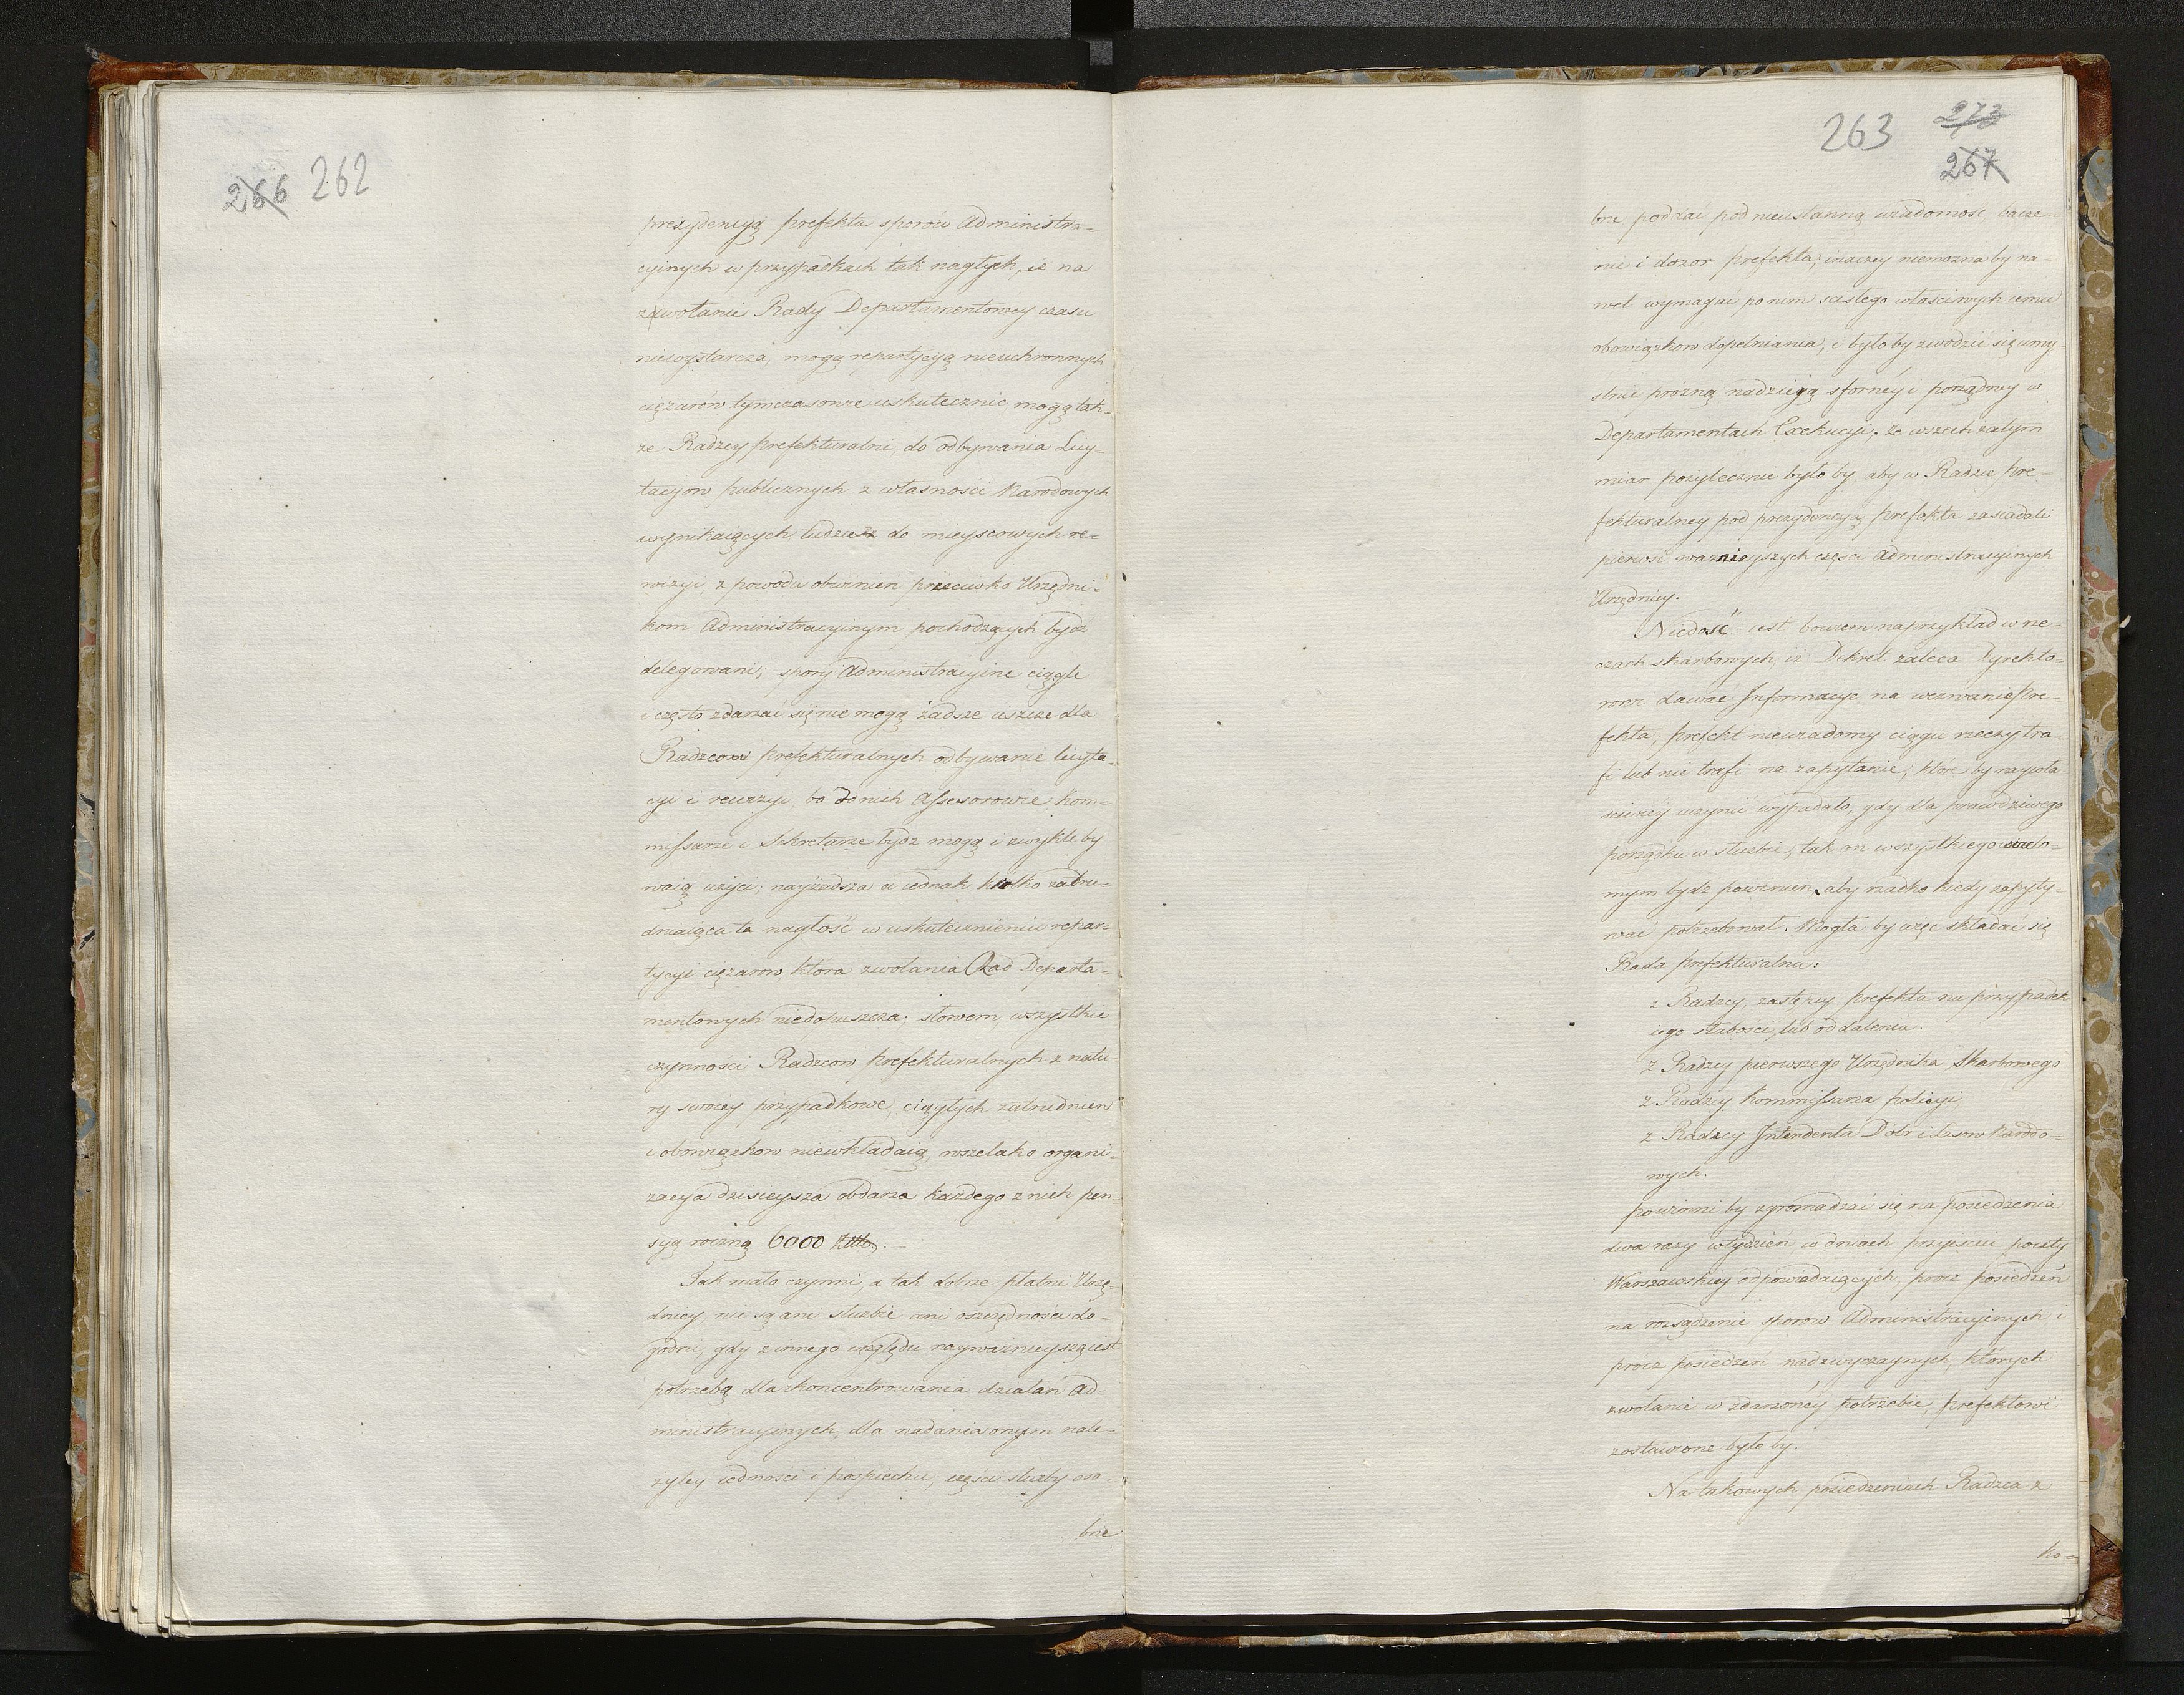 266 262
prezydencyą prefekta sporow Administra=
cyinych w przypadkach tak nagłych, iż na
zwołanie Rady Departamentowey czasu
niewystarcza, mogą repartycyą nieuchronnych
ciężarów tymczasowie uskutecznic mogą tak=
że Radzcy prefekturalni, do odbywania Licy=
tacyow publicznych z własnosci Narodowych
wynikaiących tudzież do mieyscowych re=
wizyi, z powodu obwinień przeciwko Urzędni=
kom Administracyinym pochodzących bydź
delegowani; spory Administracyine ciągle
i często zdarzać się nie mogą żadsze ieszcze dla
Radzcow prefekturalnych odbywanie licyta=
cyi i rewizyi, bo do nich Assessorowie, Kom=
missarze i Sekretarze bydz mogą i zwykle by
waią użyci; nayżadsza a iednak krótko zatru=
dniaiąca ta nagłość w uskutecznieniu repar=
tycyi ciężarow, ktora zwołania Rad Departa=
mentowych niedopuszcza; słowem, wszystkie
czynności Radzcow prefekturalnych z natu=
ry swoiey przypadkowe, ciągłych zatrudnien
i obowiązkow niewkładaią, wszelako organi=
zacya dzisieysza obdarza każdego z nich pen=
syą roczną 6000
Tak mało czynni, a tak dobrze płatni Urzę=
dnicy nie są ani służbie ani oszczędności do=
godni, gdy z innego względu nayważnieyszą iest
potrzebą dla zkoncentrowania działań Ad=
ministracyinych, dla nadania onym nale=
żytey iedności i pospiechu, części służby oso=
bne
263 273
267
bne poddać pod nieustanną wiadomość, bacze=
nie i dozor prefekta; inaczey niemożna by na=
wet wymagać po nim scisłego właściwych iemu
obowiązkow dopełniania, i było by zwodzić się umy
slnie prozną nadzieją sforney i porządney w
Departamentach Exekucyi. Ze wszech zatym
miar pożytecznie było by, aby w Radzie pre=
fekturalney pod prezydencyą prefekta zasiadali
pierwsi ważnieyszych części Administracyinych
Urzędnicy.
Niedość iest bowiem naprzykład w rze=
czach skarbowych, iż Dekret zaleca Dyrekto=
rowi dawać Informacye na wezwanie Pre=
fekta; prefekt niewiadomy ciągu rzeczy tra=
fi lub nie trafi na zapytanie, które by naywła=
sciwiey uczynić wypadało, gdy dla prawdziwego
porządku w służbie, tak on wszystkiego wiado=
mym bydź powinien, aby rzadko kiedy zapyty=
wać potrzebował. Mogła by więc składać się
Rada prefekturalna:
z Radzcy, zastępcy prefekta na przypadek
iego słabości, lub oddalenia.
z Radzcy pierwszego Urzędnika Skarbowego
z Radzcy Kommissarza policyi
z Radzcy Intendenta Dobr i Lasow Narodo=
wych.
powinni by zgromadzać się na posiedzenia
dwa razy w tydzien, w dniach przyiściu poczty
Warszawskiey odpowiadaiących, prócz posiedzeń
na rozsądzenie sporow Administracyinych i
prócz posiedzeń nadzwyczaynych, których
zwołanie w zdarzoney potrzebie, prefektowi
zostawione było by.
Na takowych posiedzeniach Radzca z
ko=